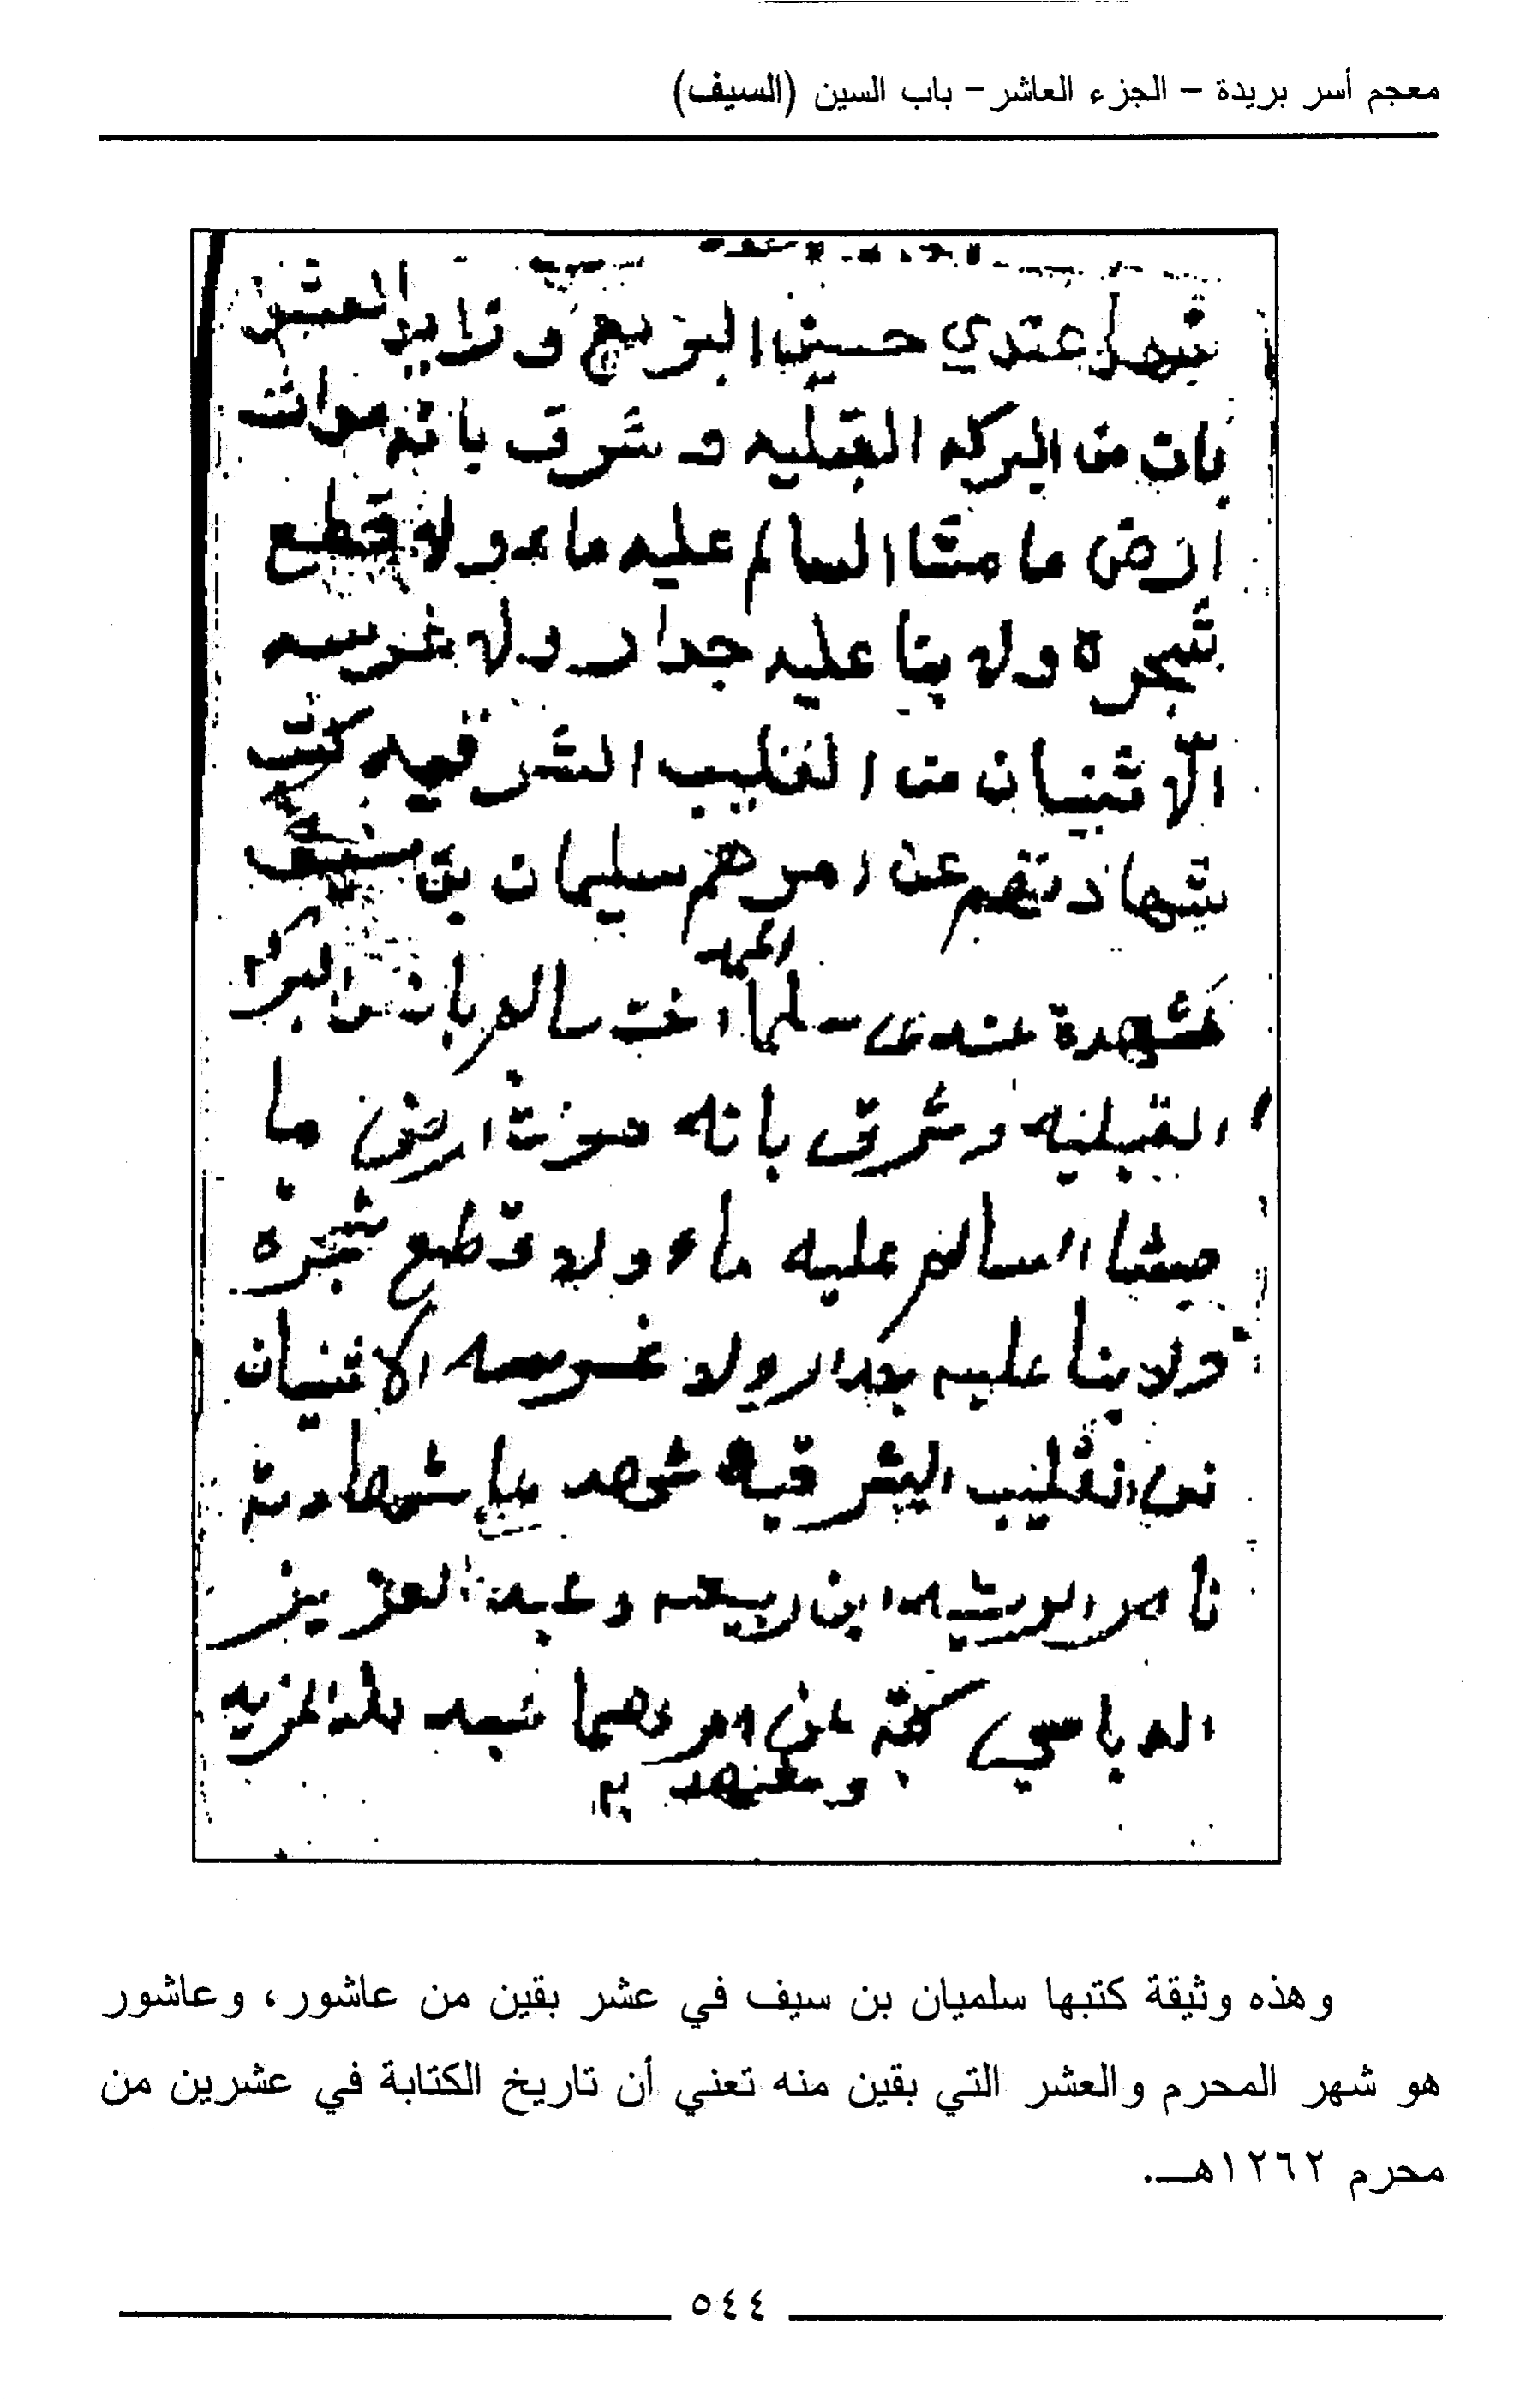 معجم أسر بريدة – الجزء العاشر – باب السين (السيف)
شهد عندي حسين البريح و زايد
بان من البركه القبليه و شرق بانه موات
ارض ما مشا السالم عليه ماء وله قطع
شجره وله بنا عليه جدار وله غرسه
الا ثنيان من القليب الشرقيه كتب
شهادتهم عن امرهم سليمان بن سيف
شهدة عندي سلما اخت سالم بان من البركه
القبليه وشرق بانه موت ارض ما
مشا السالم عليه ماء ولا قطع شجره
ولا بنا عليه جدار ولا غرسه الا ثنيان
من القليب الشرقيه شهد علا شهادته
ناصر ابن ربيعه وعبد العزيز
كتبه عن امرهما
وشهد به
وهذه وثيقة كتبها سلميان بن سيف في عشر بقين من عاشور، وعاشور
هو شهر المحرم والعشر التي بقين منه تعني أن تاريخ الكتابة في عشرين من
محرم ١٢٦٢هـ.
٥٤٤